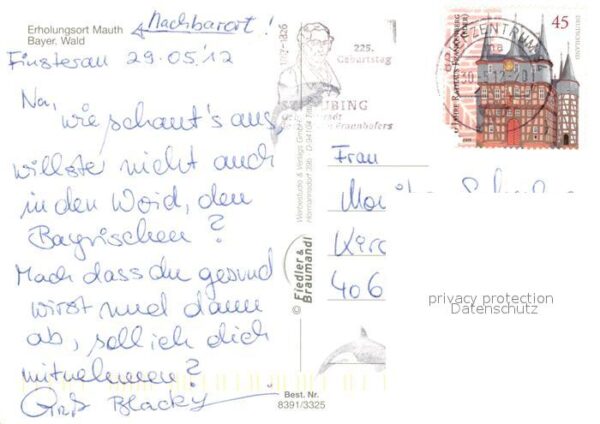 Erholungsort Mauth
Bayer. Wald
Nachbarort!
Finsterau 29.05.'12
Na,
wie schaut's aus,
willster nicht auch
in den Woid, den
Bayrischen?
Mach dass du gesund
wirst und dann
ab, soll ich dich
mitnehmen?
Gruß Blacky
1787-1826
225.
Geburtstag
UBING
Fraunhofers
Fiedler &
Braumandl
©
Best. Nr.
8391/3325
EZENTRUM
45
DEUTSCHLAND
Frau
406
privacy protection
Datenschutz